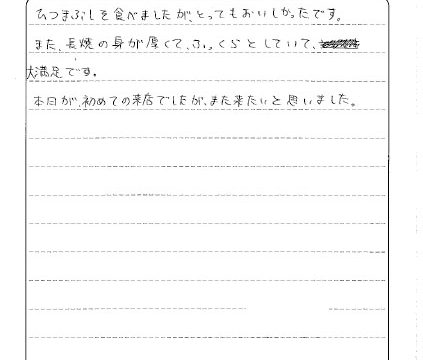 ひつまぶしを食べましたが、とってもおいしかったです。
また、長焼の身が厚くて、ふっくらとしていて、
大満足です。
本日が、初めての来店でしたが、また来たいと思いました。